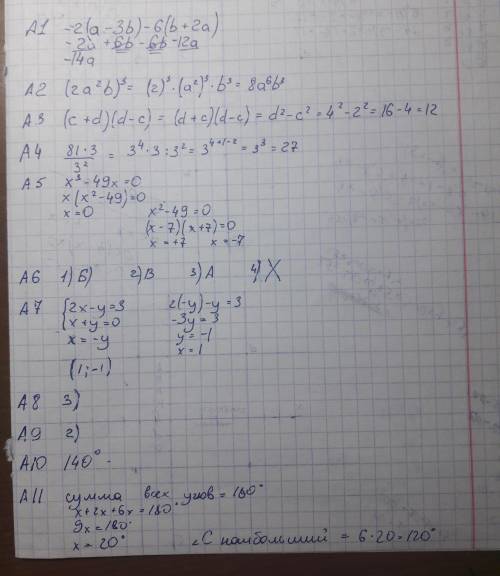 A1 -2(a-3b)-6(b+2a)
-2a+6b-6b-12a
-14a
A2 (2a²b)³ = (2)³·(a²)³·b³ = 8a⁶b³
A3 (c+d)(d-c) = (d+c)(d-c) = d²-c² = 4²-2² = 16-4 = 12
A4 81·3/3² = 3⁴·3:3² = 3⁴⁺¹⁻² = 3³ = 27
A5 x³-49x=0
x(x²-49)=0
x=0 x²-49=0
(x-7)(x+7)=0
x=+7 x=-7
A6 1) Б) 2) В 3) А 4) X
A7 {2x-y=3 2(-y)-y=3
x+y=0 -3y=3
x=-y y=-1
x=1
(1;-1)
A8 3)
A9 2)
A10 140°
A11 сумма всех углов = 180°
x+2x+6x=180°
9x=180°
x=20° ∠C наибольший = 6·20=120°